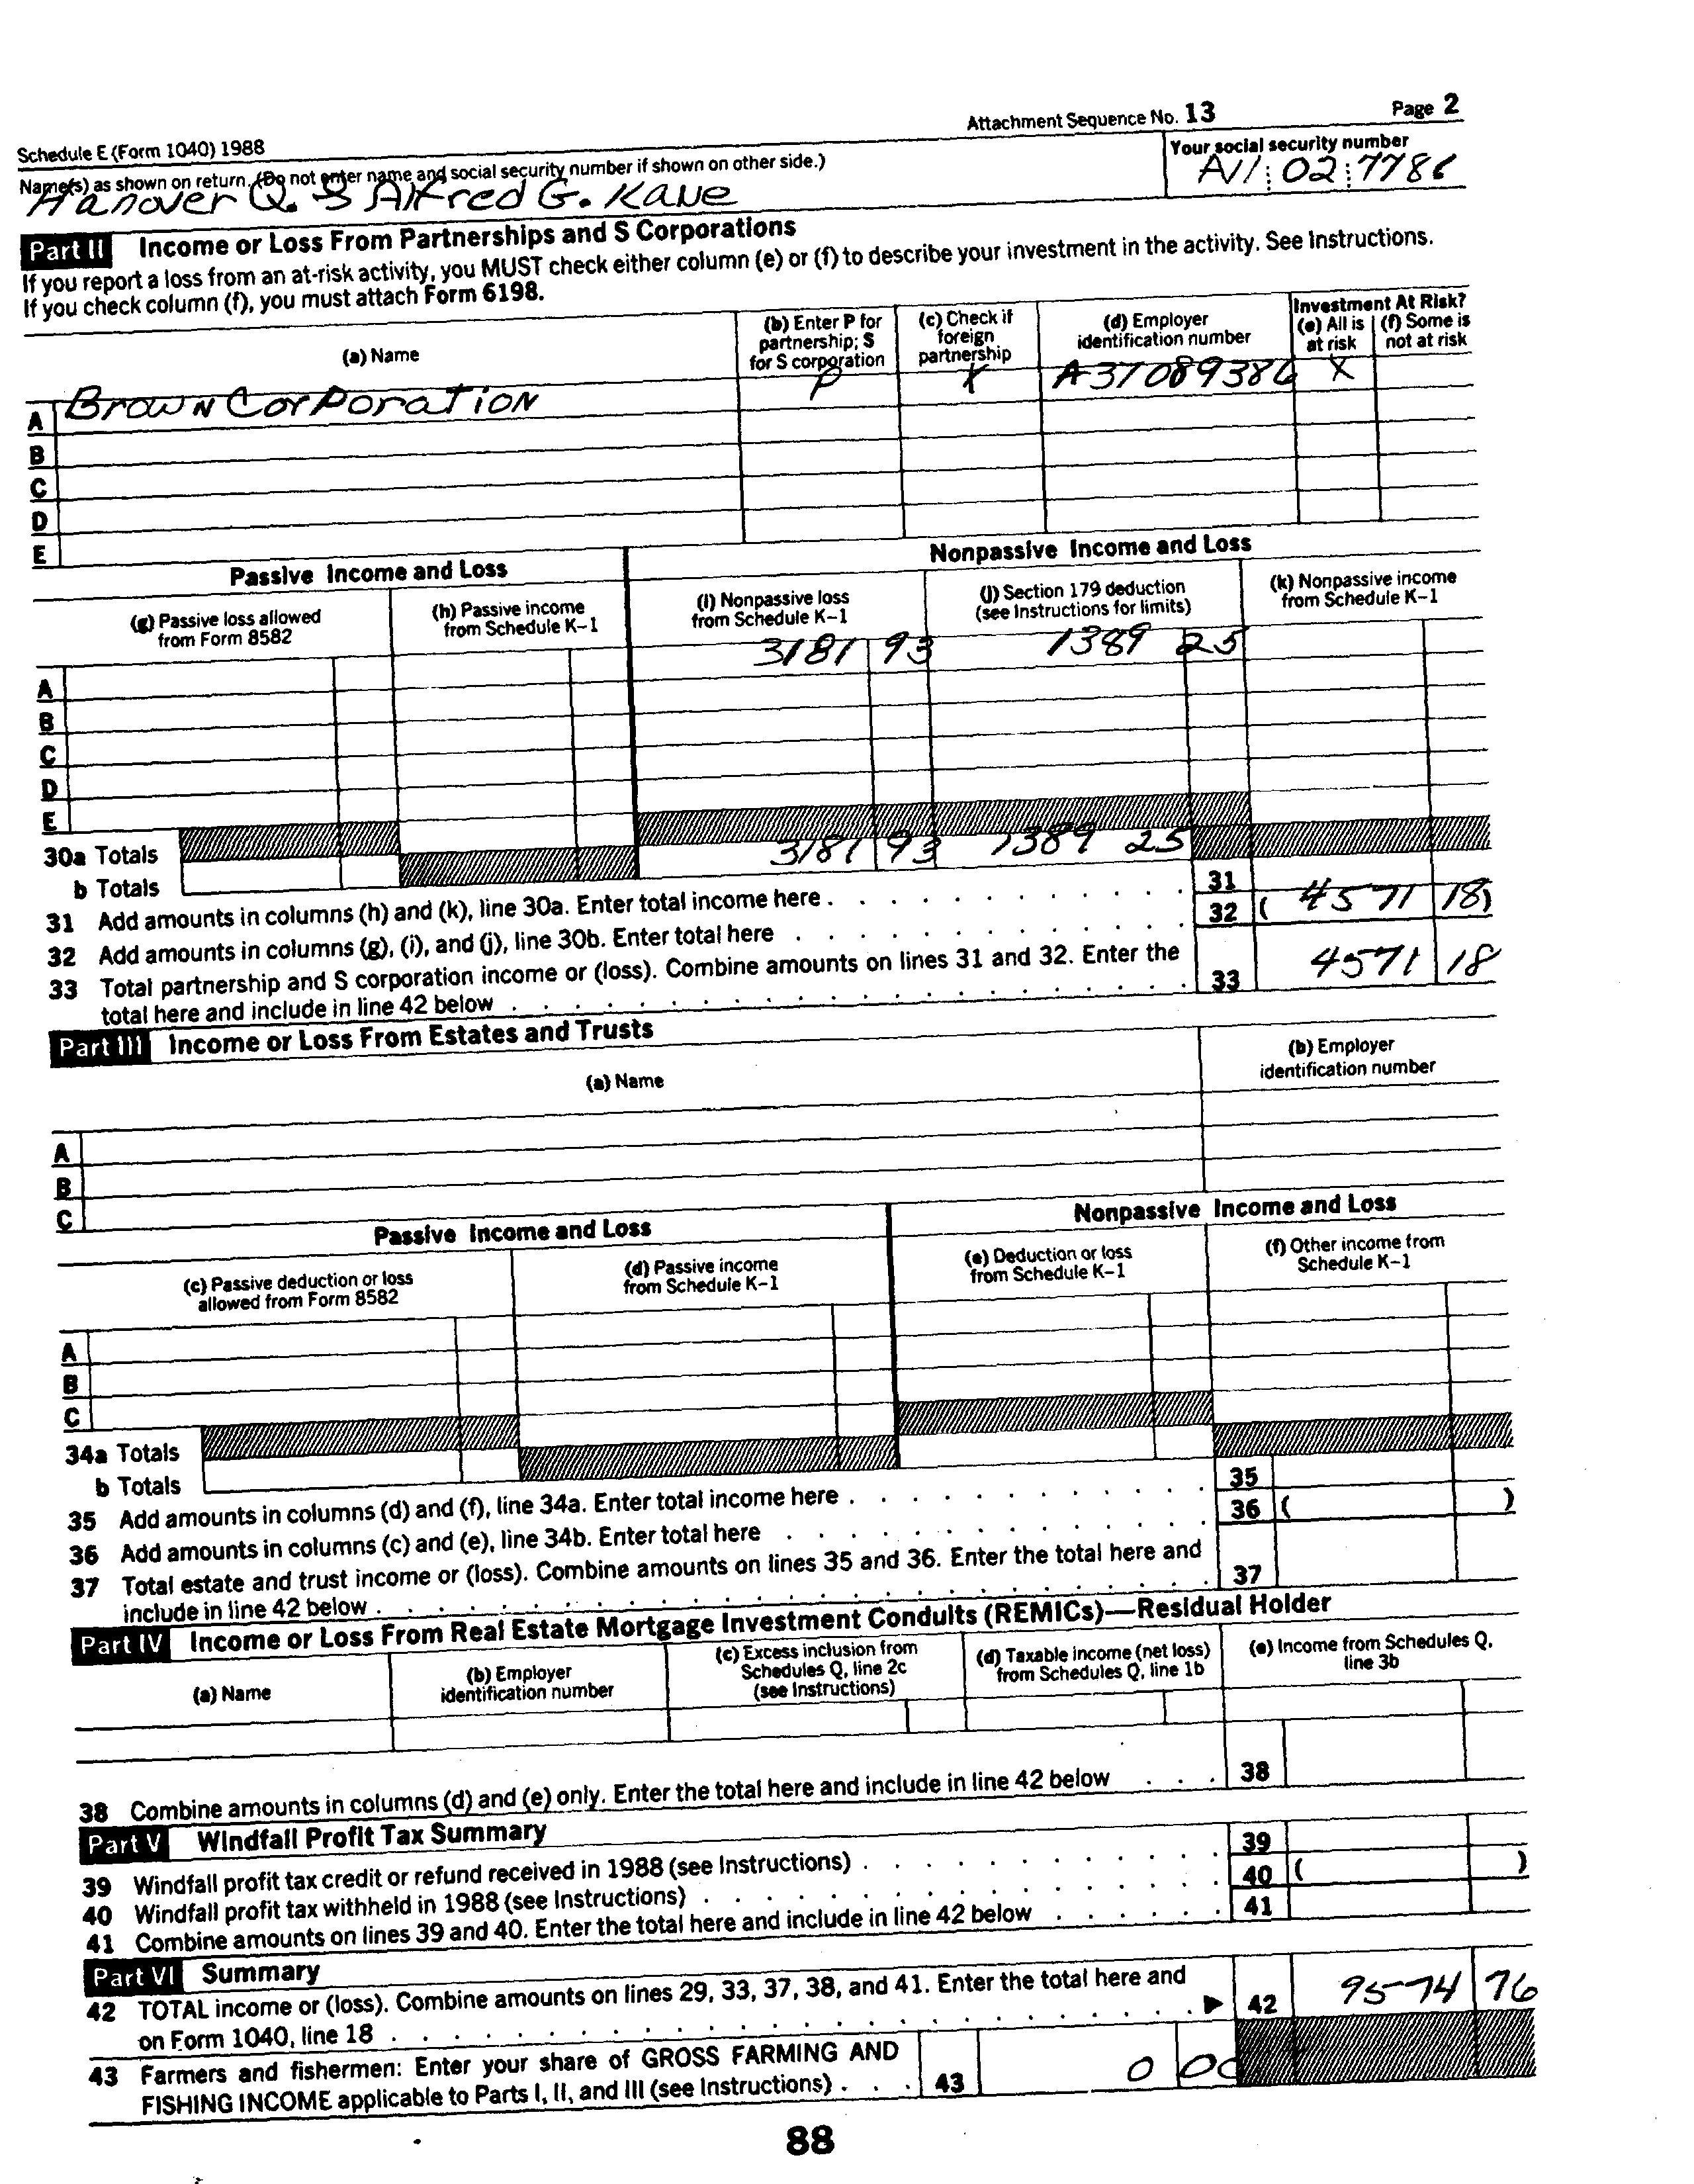 Schedule E (Form 1040) 1988 Attachment Sequence No. 13 Page 2
Name(s) as shown on return. (Do not enter name and social security number if shown on other side.) Your social security number
Hanover Q. & Alfred G. Kane A11 02 7786
Part II Income or Loss From Partnerships and S Corporations
If you report a loss from an at-risk activity, you MUST check either column (e) or (f) to describe your investment in the activity. See Instructions.
If you check column (f), you must attach Form 6198.
(a) Name
(b) Enter P for partnership; S for S corporation
(c) Check if foreign partnership
(d) Employer identification number
Investment At Risk?
(e) All is at risk
(f) Some is not at risk
A Brown Corporation P X A37089386 X
B
C
D
E
Passive Income and Loss Nonpassive Income and Loss
(g) Passive loss allowed from Form 8582
(h) Passive income from Schedule K–1
(i) Nonpassive loss from Schedule K–1
(j) Section 179 deduction (see Instructions for limits)
(k) Nonpassive income from Schedule K–1
A 3181 93 1389 25
B
C
D
E
30a Totals
b Totals 3181 93 1389 25
31 Add amounts in columns (h) and (k), line 30a. Enter total income here . . . 31
32 Add amounts in columns (g), (i), and (j), line 30b. Enter total here . . . 32 ( 4571 18)
33 Total partnership and S corporation income or (loss). Combine amounts on lines 31 and 32. Enter the
total here and include in line 42 below . . . 33 4571 18
Part III Income or Loss From Estates and Trusts
(a) Name
(b) Employer identification number
A
B
C
Passive Income and Loss Nonpassive Income and Loss
(c) Passive deduction or loss allowed from Form 8582
(d) Passive income from Schedule K–1
(e) Deduction or loss from Schedule K–1
(f) Other income from Schedule K–1
A
B
C
34a Totals
b Totals
35 Add amounts in columns (d) and (f), line 34a. Enter total income here . . . 35
36 Add amounts in columns (c) and (e), line 34b. Enter total here . . . 36 ( )
37 Total estate and trust income or (loss). Combine amounts on lines 35 and 36. Enter the total here and
include in line 42 below . . . 37
Part IV Income or Loss From Real Estate Mortgage Investment Conduits (REMICs)—Residual Holder
(a) Name
(b) Employer identification number
(c) Excess inclusion from Schedules Q, line 2c (see Instructions)
(d) Taxable income (net loss) from Schedules Q, line 1b
(e) Income from Schedules Q, line 3b
38 Combine amounts in columns (d) and (e) only. Enter the total here and include in line 42 below . . . 38
Part V Windfall Profit Tax Summary
39 Windfall profit tax credit or refund received in 1988 (see Instructions) . . . 39
40 Windfall profit tax withheld in 1988 (see Instructions) . . . 40 ( )
41 Combine amounts on lines 39 and 40. Enter the total here and include in line 42 below . . . 41
Part VI Summary
42 TOTAL income or (loss). Combine amounts on lines 29, 33, 37, 38, and 41. Enter the total here and
on Form 1040, line 18 . . . ▶ 42 9574 76
43 Farmers and fishermen: Enter your share of GROSS FARMING AND
FISHING INCOME applicable to Parts I, II, and III (see Instructions) . . . 43 0 00
88